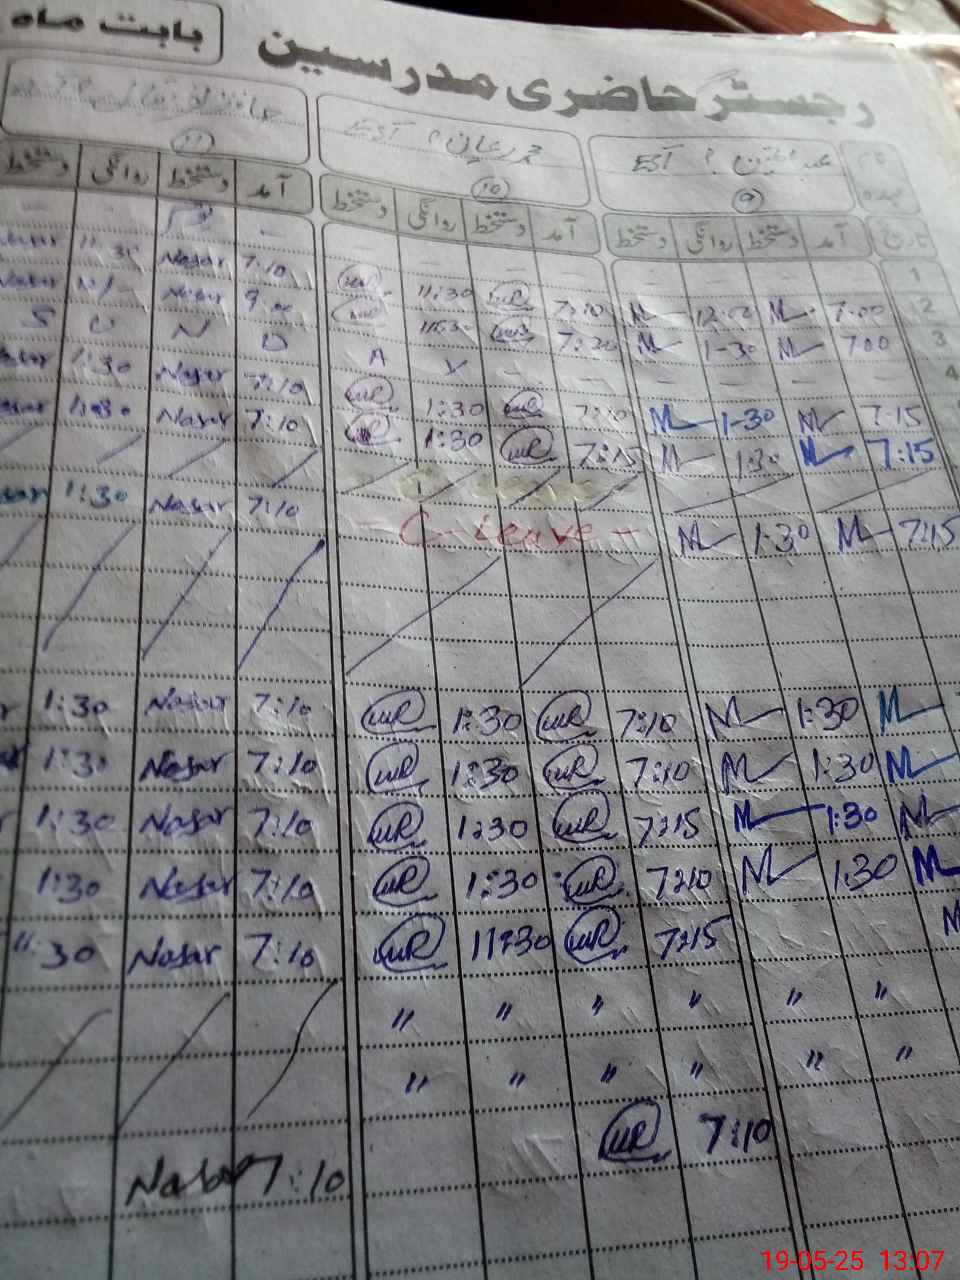 رجسٹر حاضری مدرسین بابت ماہ
نام
عہدہ
EST
EST
۹
۱۰
۱۱
تاریخ آمد دستخط روانگی دستخط آمد دستخط روانگی دستخط آمد دستخط روانگی دستخط
1 — — — — — — — — —
2 7:00 M 12:00 M 7:10 WR 11:30 WR 7:10 Nasar 11:30
3 7:00 M 1-30 M 7:20 WR 11:30 WR 9:00 Nasar
4 — — — — — — Y A D N U S
7:15 M 1-30 M 7:10 WR 1:30 WR 7:10 Nasar 1:30
7:15 M 1:30 M 7:15 WR 1:30 WR 7:10 Nasar 1:30
7:15 M 1-30 M - C-Leave - 7:10 Nasar 1:30
M 1:30 M 7:10 WR 1:30 WR 7:10 Nasar 1:30
M 1:30 M 7:10 WR 1:30 WR 7:10 Nasar 1:30
M 1:30 M 7:15 WR 1:30 WR 7:10 Nasar 1:30
M 1:30 M 7:10 WR 1:30 WR 7:10 Nasar 1:30
M 7:15 WR 11:30 WR 7:10 Nasar 11:30
" " " " " "
" " " " " "
7:10 WR 7:10 Nasar
19-05-25 13:07